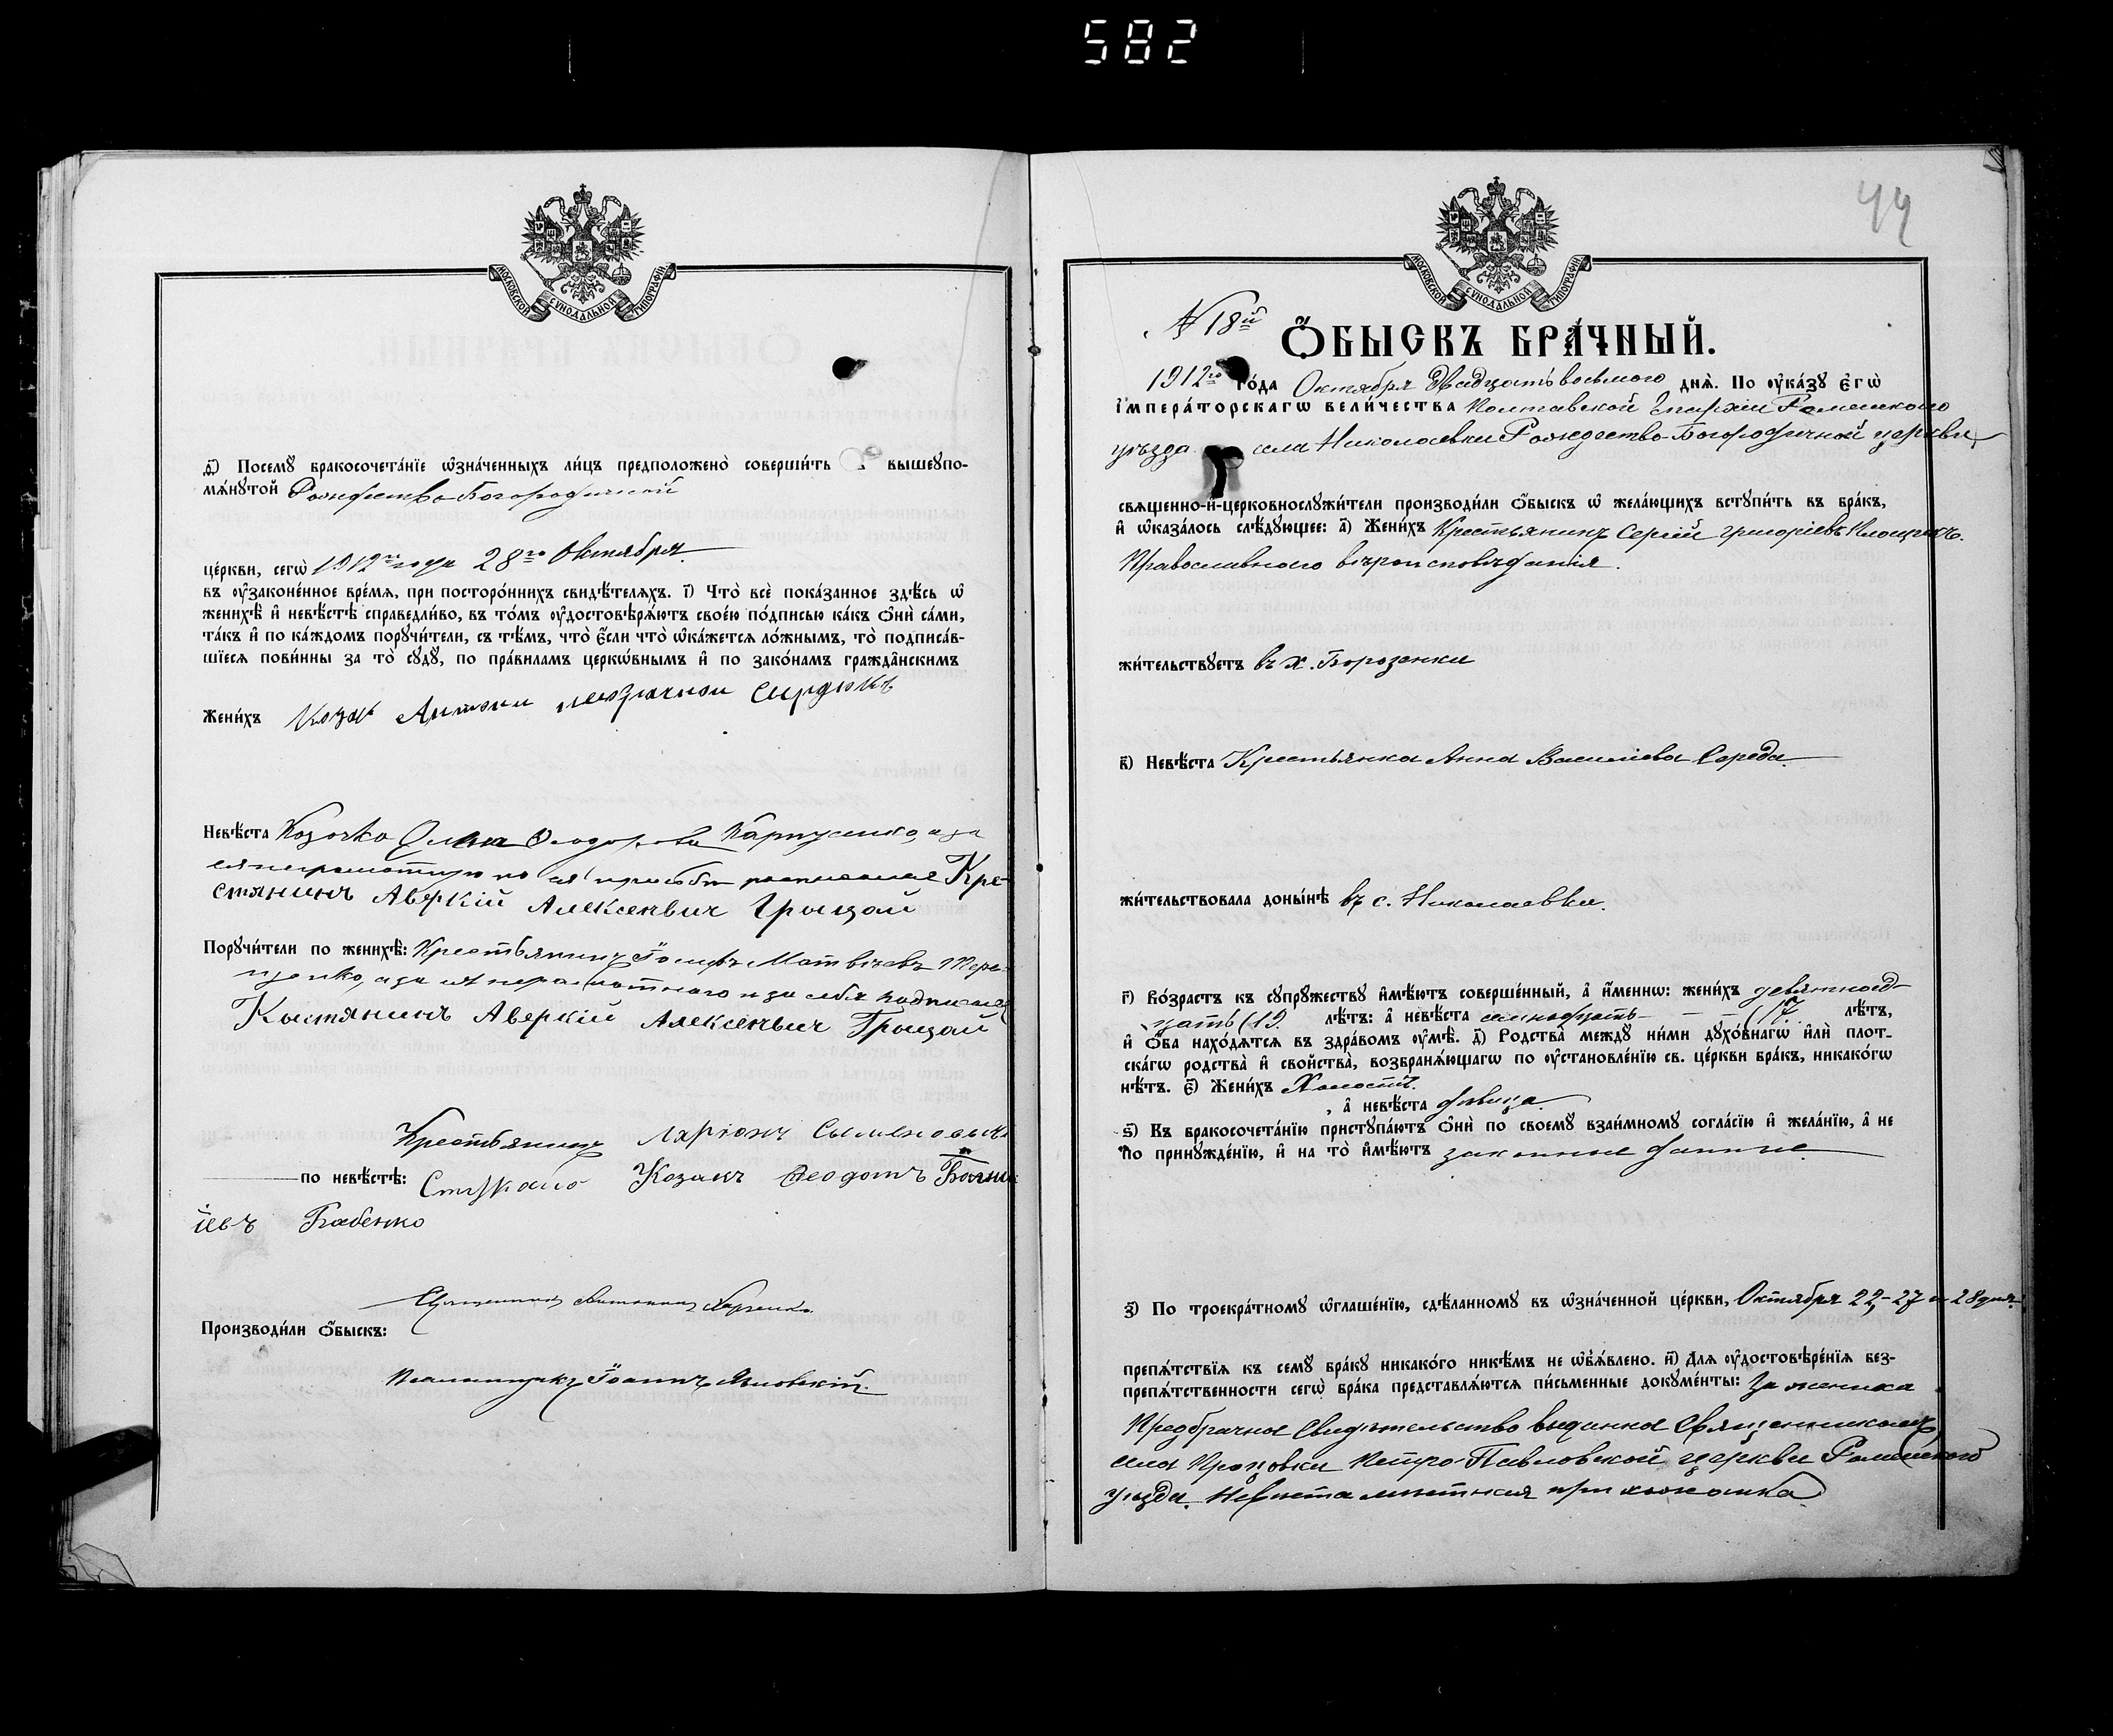 582
МОСКОВСКОЙ СѴНОДАЛЬНОЙ ТИПОГРАФІИ
ѳ҃) Посемꙋ бракосочета́нїе ѡ҆зна́ченныхъ ли́цъ предположено̀ соверши́ть въ вышеꙋпо-
мѧ́нꙋтой Рождество-Богородичной
це́ркви, сегѡ̀ 1912го года 28го Октября
въ оу҆зако́ненное вре́мѧ, при посторо́ннихъ свидѣ́телѧхъ. і҃) Что̀ всѐ пока́занное здѣ́сь ѡ҆
женихѣ̀ и҆ невѣ́стѣ справедли́во, въ то́мъ оу҆достовѣрѧ́ютъ свое́ю по́дписью ка́къ ѻ҆нѝ са́ми,
та́къ и҆ по ка́ждомъ порꙋчи́тели, съ тѣ́мъ, что̀ є҆́сли что̀ ѡ҆ка́жетсѧ ло́жнымъ, то̀ подписа́в-
шїесѧ пови́нны за то̀ сꙋдꙋ̀, по пра́виламъ церкѡ́внымъ и҆ по зако́намъ гражда̂нскимъ
Жени́хъ Козак Антони Сырдюкъ
Невѣ́ста Козачка Феодорова Карпусенко, а за
ея неграмотную по ея просьбѣ росписался Кре-
стянинъ Аверкій Алексѣевич Грицай
Порꙋчи́тели по женихѣ̀: Крестьянинъ Іосифъ Матвѣевъ Тере-
щенко, а за его неграмотного и за себя подписался
Кыстянинъ Аверкій Алексѣевич Грицай
Крестьянинъ Ларіонъ Сыменовыч
по невѣ́стѣ: Стукало Козакъ Феодотъ
іевъ Бабенко
Священникъ
Производи́ли ѻ҆́быскъ:
Псаломщикъ Іоаннъ
44
МОСКОВСКОЙ СѴНОДАЛЬНОЙ ТИПОГРАФІИ
№ 18й
Ѻ҆́БЫСКЪ БРА́ЧНЫЙ.
1912го го́да Октября двадцать восьмого днѧ̀. По оу҆ка́зꙋ є҆гѡ̀
і҆мпера́торскагѡ вели́чества Полтавской Епархіи Роменского
уѣзда села Николаевки Рождество-Богородичной церкви
свѧщенно-и҆-церковнослꙋжи́тели производи́ли ѻ҆́быскъ ѡ҆ жела́ющихъ встꙋпи́ть въ бра́къ,
и҆ ѡ҆каза́лось слѣ́дꙋющее: а҃) Жени́хъ Крестьянинъ Сергій Григоріевъ
Православного вѣроисповѣданія.
жи́тельствꙋетъ въ х. Борозенки
в҃) Невѣ́ста Крестьянка Анна Василіева Середа
жи́тельствовала доны́нѣ въ с. Николаевки.
г҃) Во́зрастъ къ сꙋпрꙋ́жествꙋ и҆мѣ́ютъ соверше́нный, а҆ и҆́менно: жени́хъ девятнад-
цать (19. лѣ́тъ: а҆ невѣ́ста семнадцать (17. лѣ́тъ,
и҆ ѻ҆́ба нахо́дѧтсѧ въ здра́вомъ оу҆мѣ̀. д҃) Родства̀ междꙋ ни́ми дꙋхо́внагѡ и҆лѝ плот-
ска́гѡ родства̀ и҆ свойства̀, возбранѧ́ющагѡ по оу҆становле́нїю св. це́ркви бра́къ, никако́гѡ
нѣ́тъ. є҃) Жени́хъ Холостъ.
, а҆ невѣ́ста дѣвица
ѕ҃) Къ бракосочета́нїю пристꙋпа́ютъ ѻ҆нѝ по своемꙋ̀ взаи́мномꙋ согла́сїю и҆ жела́нїю, а҆ не
по принꙋжде́нїю, и҆ на то̀ и҆мѣ́ютъ законные данные
з҃) По троекра́тномꙋ ѡ҆глаше́нїю, сдѣ́ланномꙋ въ ѡ҆зна́ченной це́ркви, Октября 22,-27 и 28 дня
препѧ́тствїѧ къ семꙋ̀ бра́кꙋ никако́го никѣ́мъ не ѡ҆б̾ѧ́влено. и҃) Длѧ оу҆достовѣре́нїѧ без-
препѧ́тственности сегѡ̀ бра́ка представлѧ́ютсѧ пи́сьменные докꙋме́нты: За жениха
Предбрачное Свидѣтельство выданное Священникомъ
села Петро-Павловской церкви Роменского
уѣзда. Невѣста мѣстная прихожанка